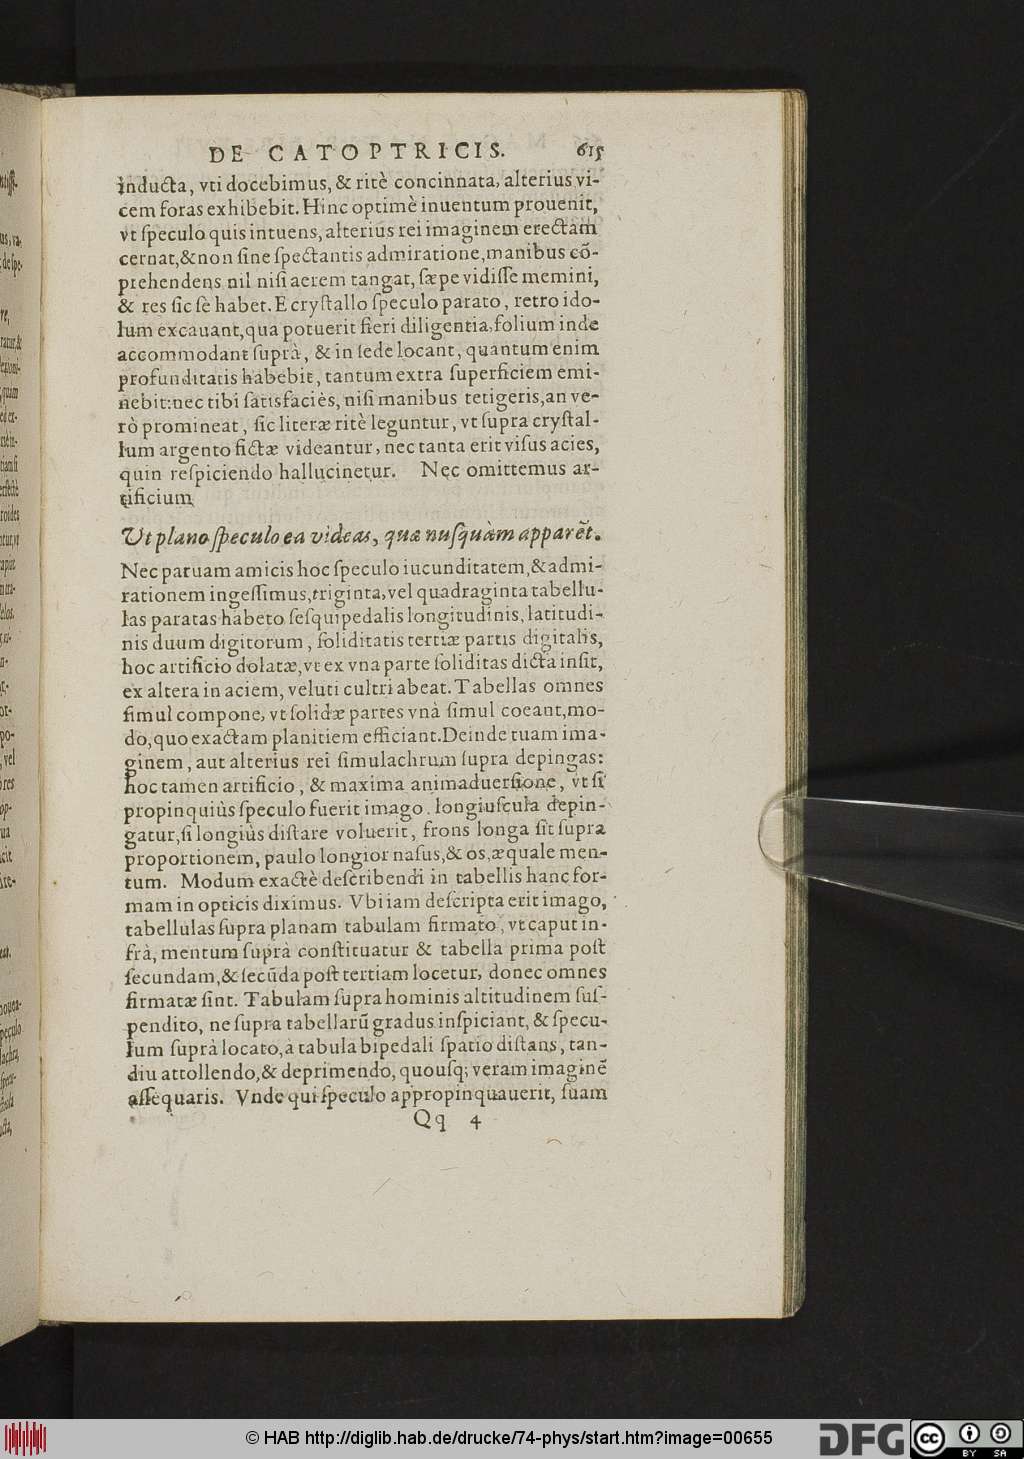 DE CATOPTRICIS. 615
inducta, vti docebimus, & ritè concinnata, alterius vi-
cem foras exhibebit. Hinc optimè inuentum prouenit,
vt ſpeculo quis intuens, alterius rei imaginem erectam
cernat, & non ſine ſpectantis admiratione, manibus cō-
prehendens nil niſi aerem tangat, ſæpe vidiſſe memini,
& res ſic ſe habet. E cryſtallo ſpeculo parato, retro ido-
lum excauant, qua potuerit fieri diligentia, folium inde
accommodant ſuprà, & in ſede locant, quantum enim
profunditatis habebit, tantum extra ſuperficiem emi-
nebit: nec tibi ſatisfaciès, niſi manibus tetigeris, an ve-
rò promineat, ſic literæ ritè leguntur, vt ſupra cryſtal-
lum argento fictæ videantur, nec tanta erit viſus acies,
quin reſpiciendo hallucinetur. Nec omittemus ar-
tificium
Vt plano ſpeculo ea videas, quæ nuſquàm apparēt.
Nec paruam amicis hoc ſpeculo iucunditatem, & admi-
rationem ingeſſimus, triginta, vel quadraginta tabellu-
las paratas habeto ſeſquipedalis longitudinis, latitudi-
nis duum digitorum, ſoliditatis tertiæ partis digitalis,
hoc artificio dolatæ, vt ex vna parte ſoliditas dicta inſit,
ex altera in aciem, veluti cultri abeat. Tabellas omnes
ſimul compone, vt ſolidæ partes vnà ſimul coeant, mo-
do, quo exactam planitiem efficiant. Deinde tuam ima-
ginem, aut alterius rei ſimulachrum ſupra depingas:
hoc tamen artificio, & maxima animaduerſione, vt ſi
propinquiùs ſpeculo fuerit imago. longiuſcula depin-
gatur, ſi longiùs diſtare voluerit, frons longa ſit ſupra
proportionem, paulo longior naſus, & os, æquale men-
tum. Modum exactè deſcribendi in tabellis hanc for-
mam in opticis diximus. Vbi iam deſcripta erit imago,
tabellulas ſupra planam tabulam firmato, vt caput in-
frà, mentum ſuprà conſtituatur & tabella prima poſt
ſecundam, & ſecūda poſt tertiam locetur, donec omnes
firmatæ ſint. Tabulam ſupra hominis altitudinem ſuſ-
pendito, ne ſupra tabellarū gradus inſpiciant, & ſpecu-
lum ſuprà locato, à tabula bipedali ſpatio diſtans, tan-
diu attollendo, & deprimendo, quouſq; veram imaginē
aſſequaris. Vnde qui ſpeculo appropinquauerit, ſuam
Qq 4
© HAB http://diglib.hab.de/drucke/74-phys/start.htm?image=00655
DFG
cc BY SA